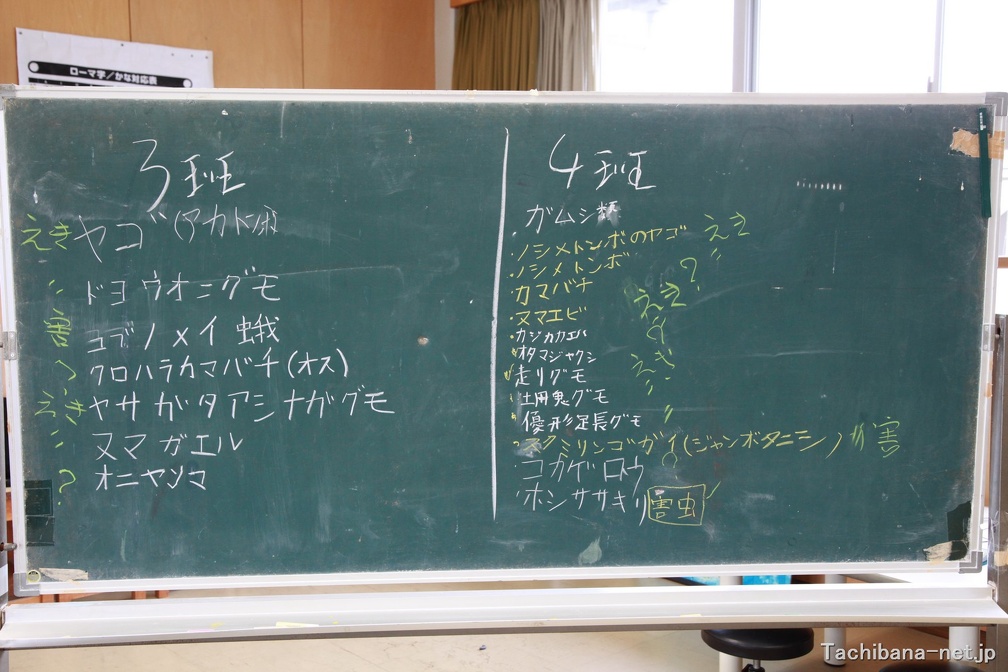 ローマ字/かな対応表
3班
えき ヤゴ (アカトンボ)
〃 ドヨウオニグモ
害 コブノメイ蛾
クロハラカマバチ(オス)
えき ヤサガタアシナガグモ
〃 ヌマガエル
? オニヤンマ
4班
・ガムシ類
・ノシメトンボのヤゴ えき
・ノシメトンボ 〃
・カマバチ ?
・ヌマエビ えき
・カジカガエル 〃
・オタマジャクシ えき
・走りグモ 〃
・土用鬼グモ
・優形足長グモ 〃
・スクミリンゴガイ(ジャンボタニシ) 害
・コカゲロウ
・ホシササキリ 害虫
Tachibana-net.jp